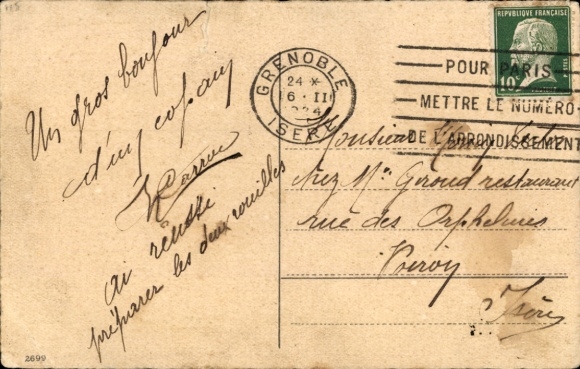 Un gros bonjour
d'un copain
Carron
ai réussi
préparer les deux rouilles
2699
115
GRENOBLE
24 *
16 · II
1924
ISERE
REPUBLIQUE FRANÇAISE
10
POUR PARIS
METTRE LE NUMÉRO
DE L'ARRONDISSEMENT
Monsieur
chez Mr Giroud restaurant
rue des Orphelines
Voiron
Isère